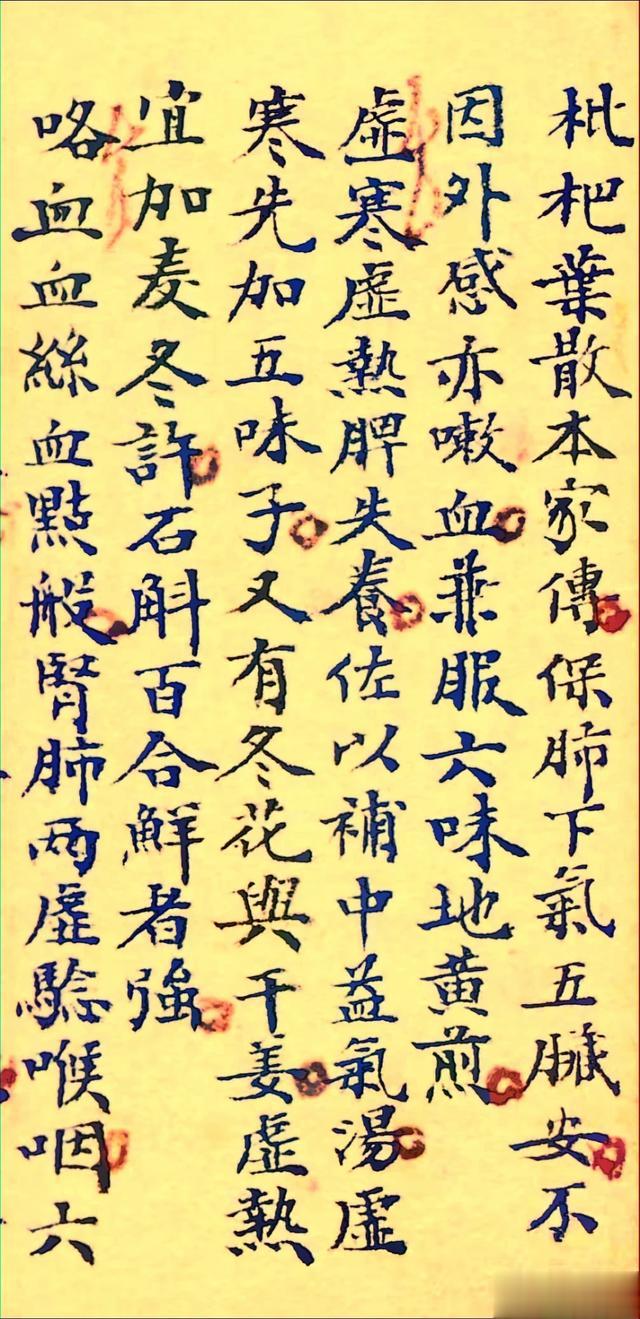 枇杷葉散本家傳保肺下氣五臟安不
因外感亦嗽血兼服六味地黃煎
虛寒虛熱脾失養佐以補中益氣湯虛
寒先加五味子又有冬花與干姜虛熱
宜加麦冬許石斛百合鮮者強
咯血血絲血點般腎肺两虛驗喉咽六